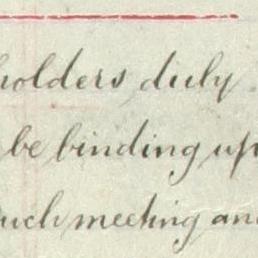 holders duly
be binding up
such meeting an